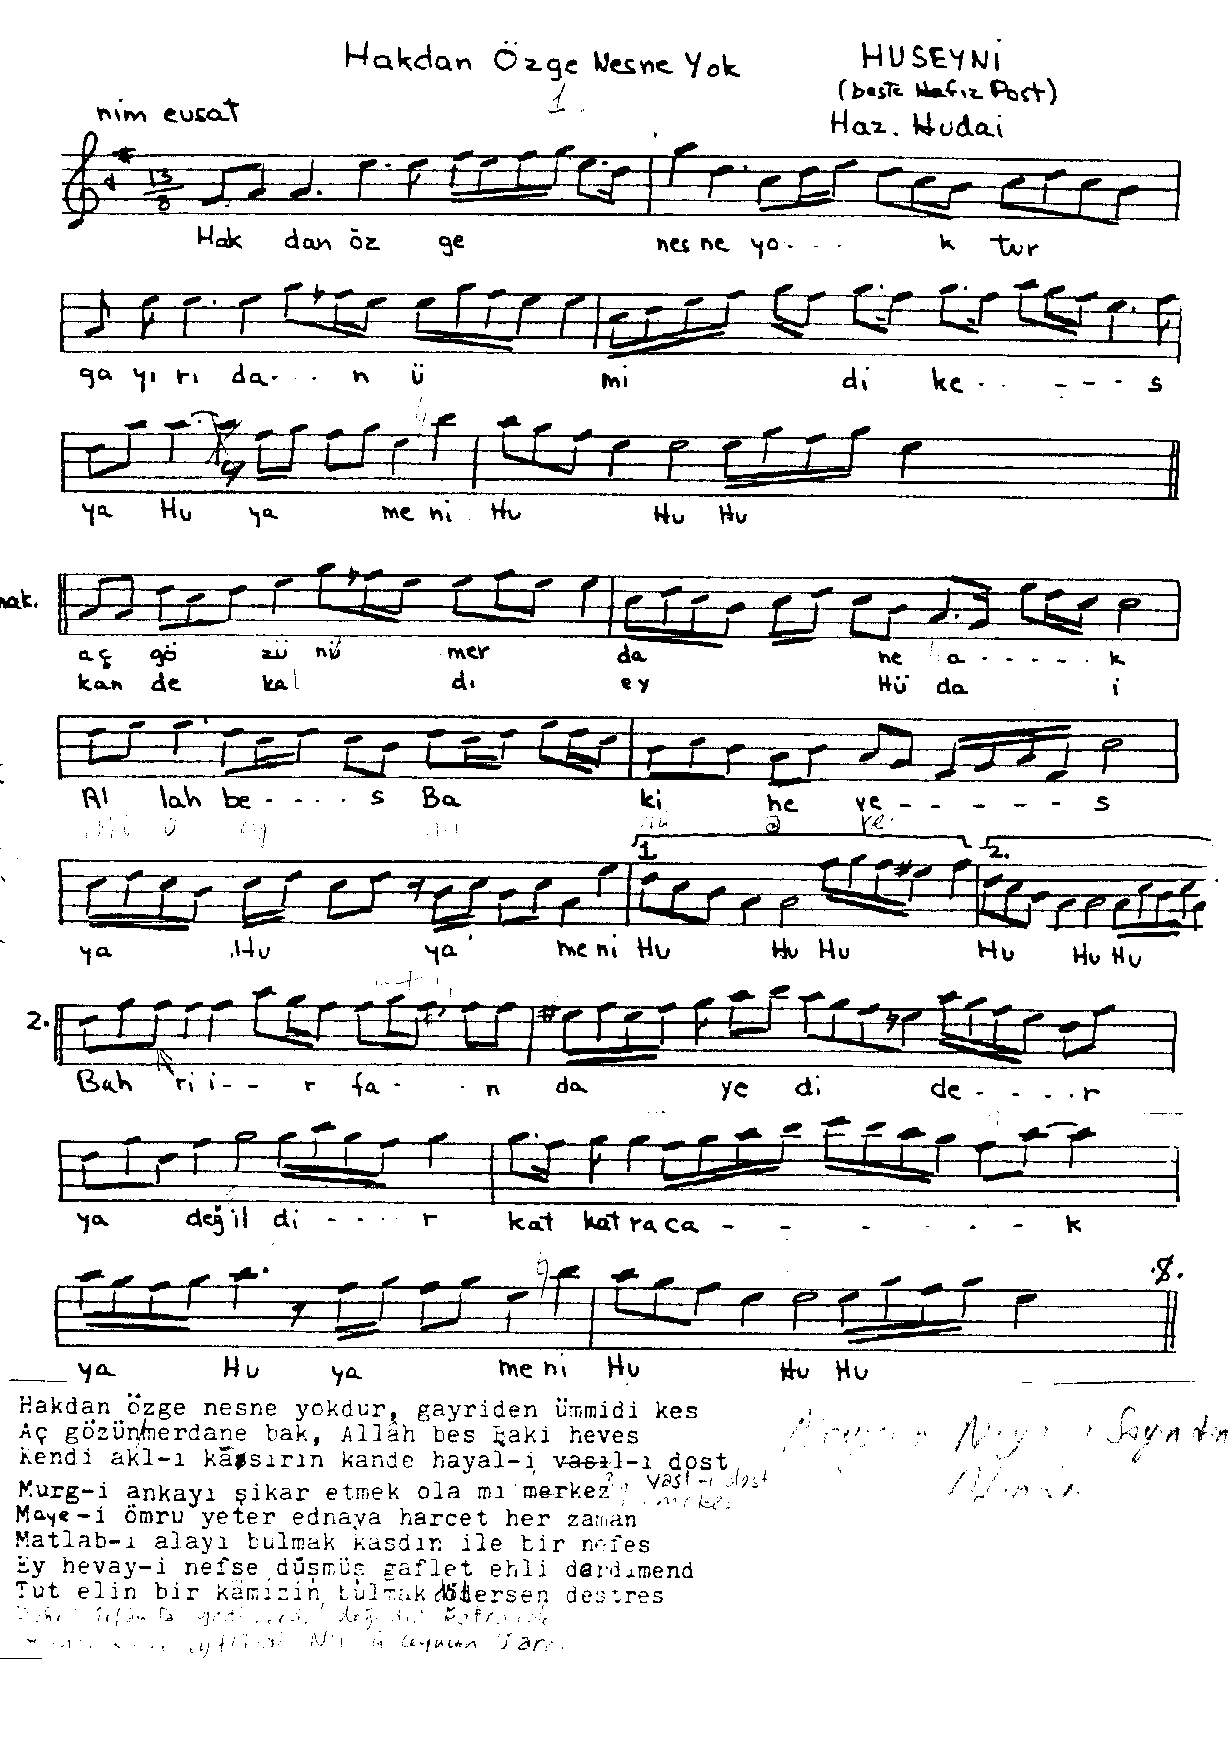 Hakdan Özge Nesne Yok
HUSEYNİ
1.
(beste Hafız Post)
nim evsat
Haz. Hudai
13
8
Hak dan öz ge nes ne yo - - - k tur
ga yı rı da - - - n ü mi di ke - - - - - s
ya Hu ya me ni Hu Hu Hu
nak.
aç gö zü nü mer da ne a - - - - - k
kan de kal dı ey Hü da i
Al lah be - - - - s Ba ki he ve - - - - - s
1. 2.
ya Hu ya me ni Hu Hu Hu Hu Hu Hu
2.
Bah ri i - - r fa - - n da ye di de - - - - r
ya değil di - - - r kat kat ra ca - - - - - k
ya Hu ya me ni Hu Hu Hu
Hakdan özge nesne yokdur, gayriden ümmidi kes
Aç gözün merdane bak, Allâh bes baki heves
Kendi akl-ı kaasırın kande hayal-i vasıl-ı dost
Murg-i ankayı şikar etmek ola mı merkez
vasl-ı dost
Maye-i ömru yeter ednaya harcet her zaman
Matlab-ı alayı bulmak kasdın ile bir nefes
Ey hevay-i nefse düşmüş gaflet ehli dardımend
Tut elin bir kâmizin bulmak dilersen destres